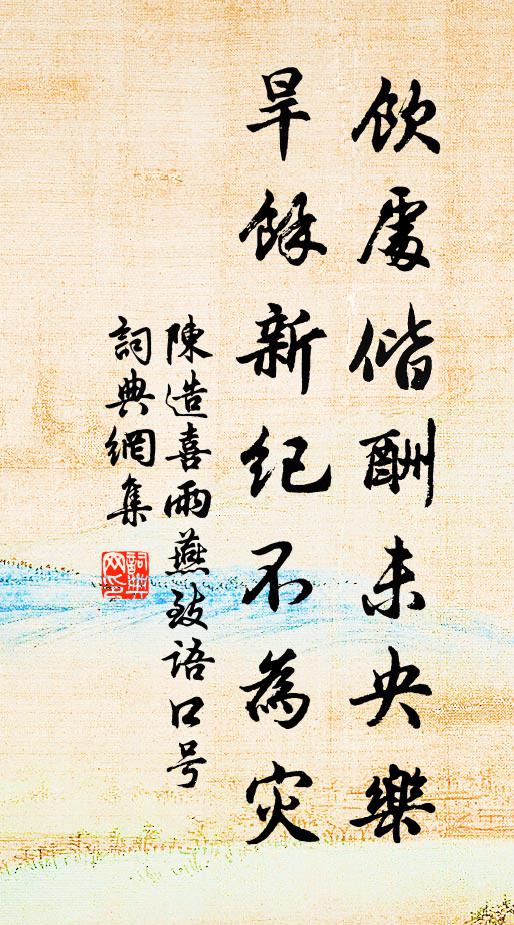 飲處偕酬未央樂
旱餘新紀不為灾
陳造喜雨燕致語口号
詞典網集